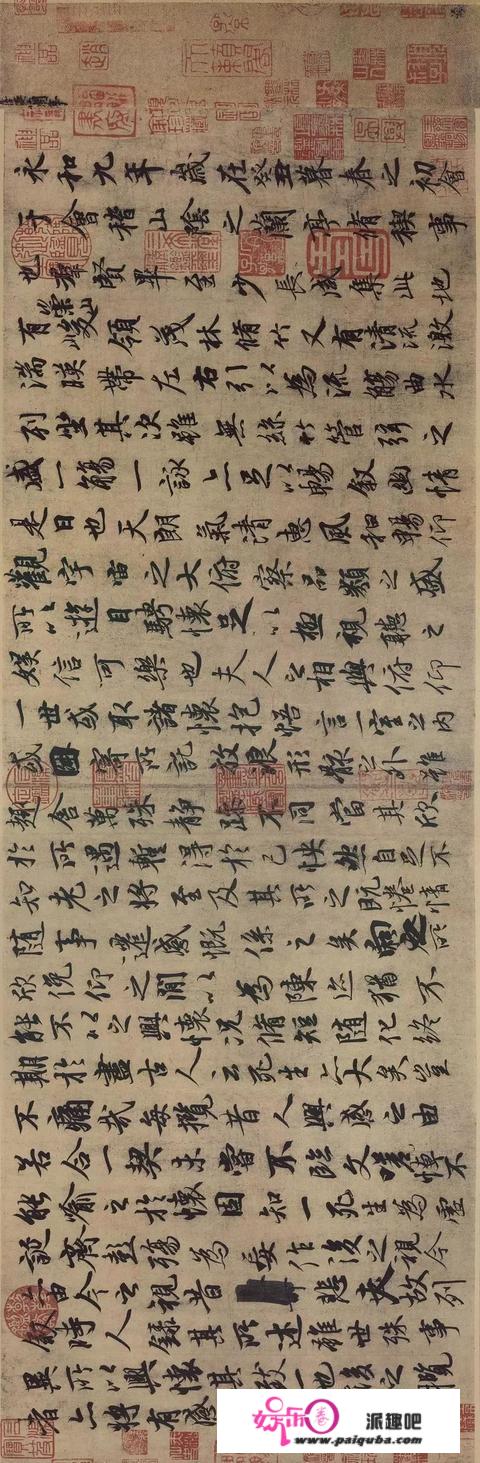 永和九年歲在癸丑暮春之初會
于會稽山陰之蘭亭脩稧事
也羣賢畢至少長咸集此地
有崇山峻領茂林脩竹又有清流激
湍暎帶左右引以為流觴曲水
列坐其次雖無絲竹管弦之
盛一觴一詠亦足以暢敘幽情
是日也天朗氣清惠風和暢仰
觀宇宙之大俯察品類之盛
所以遊目騁懷足以極視聽之
娛信可樂也夫人之相與俯仰
一世或取諸懷抱悟言一室之內
或因寄所託放浪形骸之外雖
趣舍萬殊靜躁不同當其欣
於所遇暫得於己怏然自足不
知老之將至及其所之既惓情
隨事遷感慨係之矣向之所
欣俛仰之閒以為陳迹猶不
能不以之興懷況脩短隨化終
期於盡古人云死生亦大矣豈
不痛哉每攬昔人興感之由
若合一契未嘗不臨文嗟悼不
能喻之於懷固知一死生為虛
誕齊彭殤為妄作後之視今
亦由今之視昔悲夫故列
敘時人錄其所述雖世殊事
異所以興懷其致一也後之攬
者亦將有感
娱乐卷 派趣吧
www.paiquba.com